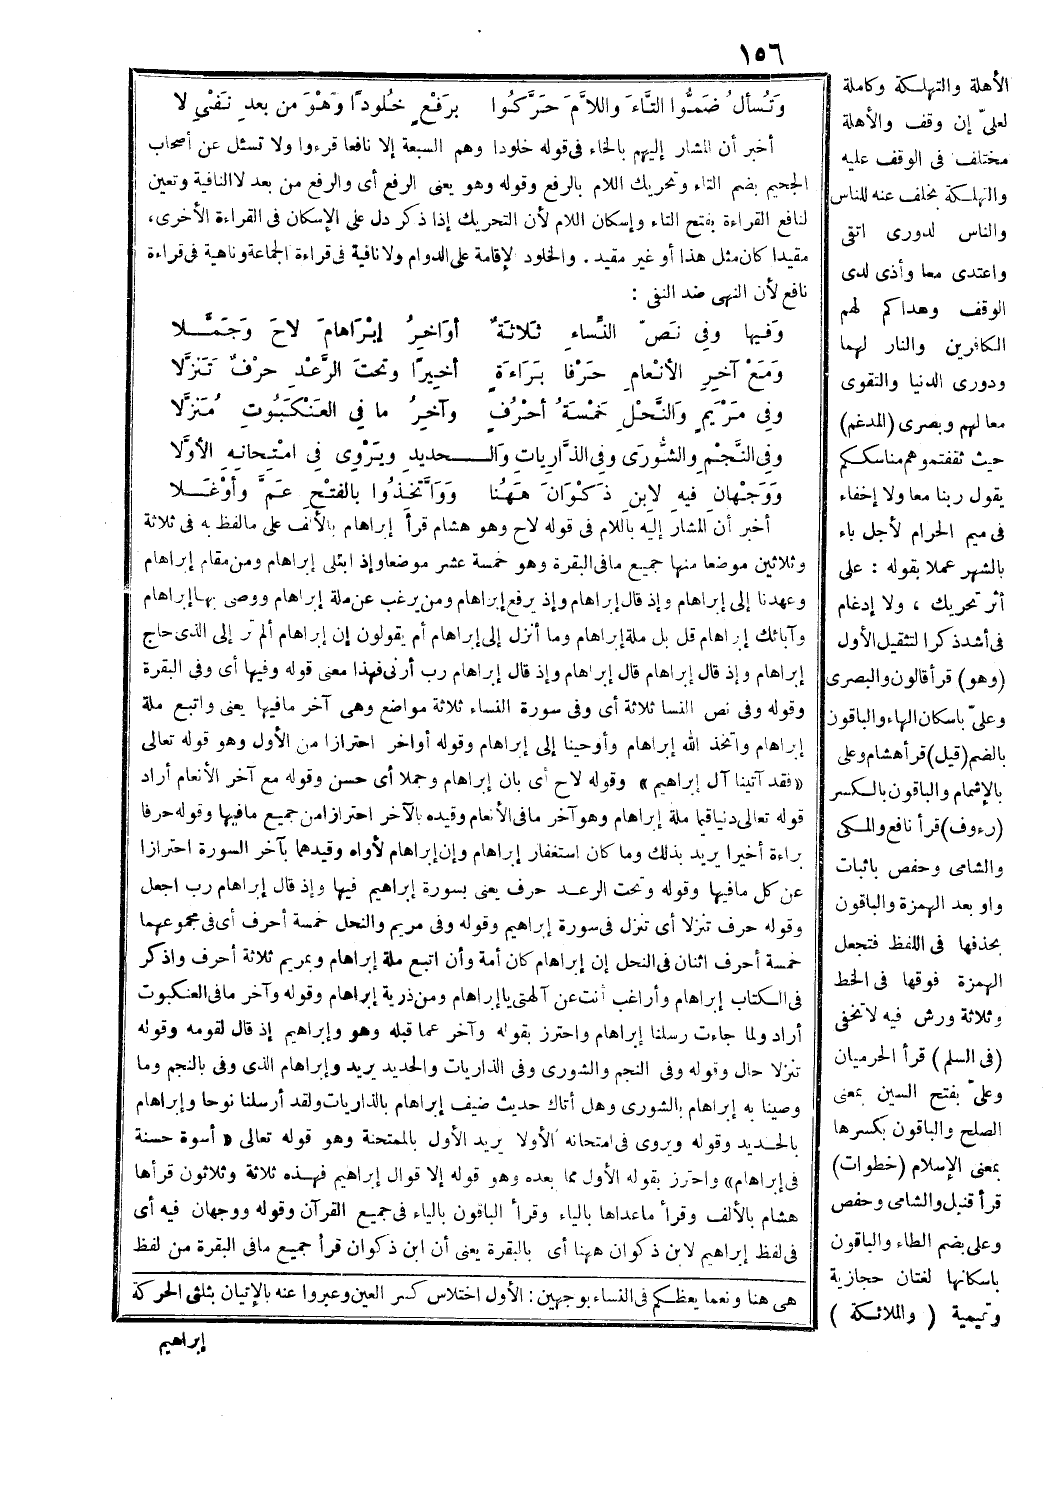 ١٥٦
وَتُسأَلُ ضَمُّوا التَّاءَ وَاللاَّمَ حَرَّكُوا برَفْعٍ خُلُودًا وَهْوَ من بعدِ نَفْيٍ لا
أخبر أن المشار إليهم بالخاء فى قوله خلودا وهم السبعة إلا نافعا قرءوا ولا تسئل عن أصحاب
الجحيم بضم التاء وتحريك اللام بالرفع وقوله وهو يعنى الرفع أى والرفع من بعد لا النافية وتعين
لنافع القراءة بفتح التاء وإسكان اللام لأن التحريك إذا ذكر دل على الإسكان فى القراءة الأخرى،
مقيدا كان مثل هذا أو غير مقيد . والخلود لإقامة على الدوام ولا نافية فى قراءة الجماعة وناهية فى قراءة
نافع لأن النهى ضد النفى :
وَفيها وفي نَصّ النِّساءِ ثَلاثَةٌ أوَاخِرُ إبْرَاهامَ لاحَ وَجَمَّلا
وَمَعْ آخِرِ الأنْعامِ حَرْفا بَرَاءَةٍ أخيرًا وتحتَ الرَّعْدِ حرْفٌ تَنَزَّلا
وفى مَرْيَمٍ وَالنَّحْلِ خَمْسَةُ أحْرُفٍ وآخِرُ ما فى العَنْكَبُوتِ مُنَزَّلا
وفى النَّجْمِ والشُّورَى وفى الذَّارِياتِ وَالحديدِ ويَرْوِى فى امْتِحانِهِ الأوَّلا
وَوَجْهانِ فيهِ لابنِ ذَكْوَانَ هَهُنا وَوَاتَّخَذُوا بالفتْحِ عَمَّ وأوْغَلا
أخبر أن المشار إليه باللام فى قوله لاح وهو هشام قرأ إبراهام بالألف على مالفظ به فى ثلاثة
وثلاثين موضعا منها جميع مافى البقرة وهو خمسة عشر موضعا وإذ ابتلى إبراهام ومن مقام إبراهام
وعهدنا إلى إبراهام وإذ قال إبراهام وإذ يرفع إبراهام ومن يرغب عن ملة إبراهام ووصى بها إبراهام
وآبائك إبراهام قل بل ملة إبراهام وما أنزل إلى إبراهام أم يقولون إن إبراهام ألم تر إلى الذى حاج
إبراهام وإذ قال إبراهام قال إبراهام وإذ قال إبراهام رب أرنى فهذا معنى قوله وفيها أى وفى البقرة
وقوله وفى نص النسا ثلاثة أى وفى سورة النساء ثلاثة مواضع وهى آخر مافيها يعنى واتبع ملة
إبراهام واتخذ الله إبراهام وأوحينا إلى إبراهام وقوله أواخر احترازا من الأول وهو قوله تعالى
«فقد آتينا آل إبراهيم» وقوله لاح أى بان إبراهام وجملا أى حسن وقوله مع آخر الأنعام أراد
قوله تعالى دنيا قيما ملة إبراهام وهو آخر مافى الأنعام وقيده بالآخر احترازا من جميع مافيها وقوله حرفا
براءة أخيرا يريد بذلك وما كان استغفار إبراهام وإن إبراهام لأواه وقيدهما بآخر السورة احترازا
عن كل مافيها وقوله وتحت الرعد حرف يعنى بسورة إبراهيم فيها وإذ قال إبراهام رب اجعل
وقوله حرف تنزلا أى تنزل فى سورة إبراهيم وقوله وفى مريم والنحل خمسة أحرف أى فى مجموعهما
خمسة أحرف اثنان فى النحل إن إبراهام كان أمة وأن اتبع ملة إبراهام وبمريم ثلاثة أحرف واذكر
فى الكتاب إبراهام وأراغب أنت عن آلهتى ياإبراهام ومن ذرية إبراهام وقوله وآخر مافى العنكبوت
أراد ولما جاءت رسلنا إبراهام واحترز بقوله وآخر عما قبله وهو وإبراهيم إذ قال لقومه وقوله
تنزلا حال وقوله وفى النجم والشورى وفى الذاريات والحديد يريد وإبراهام الذى وفى بالنجم وما
وصينا به إبراهام بالشورى وهل أتاك حديث ضيف إبراهام بالذاريات ولقد أرسلنا نوحا وإبراهام
بالحديد وقوله ويروى فى امتحانه الأولا يريد الأول بالممتحنة وهو قوله تعالى «أسوة حسنة
فى إبراهام» واحترز بقوله الأول مما بعده وهو قوله إلا قوال إبراهيم فهذه ثلاثة وثلاثون قرأها
هشام بالألف وقرأ ماعداها بالياء وقرأ الباقون بالياء فى جميع القرآن وقوله ووجهان فيه أى
فى لفظ إبراهيم لابن ذكوان ههنا أى بالبقرة يعنى أن ابن ذكوان قرأ جميع مافى البقرة من لفظ
هى هنا ونعما يعظكم فى النساء بوجهين : الأول اختلاس كسر العين وعبروا عنه بالإتيان بثلثى الحركة
إبراهيم
الأهلة والتهلكة وكاملة
لعلىّ إن وقف والأهلة
مختلف فى الوقف عليه
والتهلكة بخلف عنه للناس
والناس لدورى اتقى
واعتدى معا وأذى لدى
الوقف وهداكم لهم
الكافرين والنار لهما
ودورى الدنيا والتقوى
معا لهم وبصرى (المدغم)
حيث ثقفتموهم مناسككم
يقول ربنا معا ولا إخفاء
فى ميم الحرام لأجل باء
بالشهر عملا بقوله : على
أثر تحريك ، ولا إدغام
فى أشد ذكرا لتثقيل الأول
(وهو) قرأ قالون والبصرى
وعلىّ باسكان الهاء والباقون
بالضم (قيل) قرأ هشام وعلى
بالإشمام والباقون بالكسر
(رءوف) قرأ نافع والمكى
والشامى وحفص باثبات
واو بعد الهمزة والباقون
بحذفها فى اللفظ فتجعل
الهمزة فوقها فى الخط
وثلاثة ورش فيه لا تخفى
(فى السلم) قرأ الحرميان
وعلىّ بفتح السين بمعنى
الصلح والباقون بكسرها
بمعنى الإسلام (خطوات)
قرأ قنبل والشامى وحفص
وعلى بضم الطاء والباقون
باسكانها لغتان حجازية
وتميمية ( والملائكة )